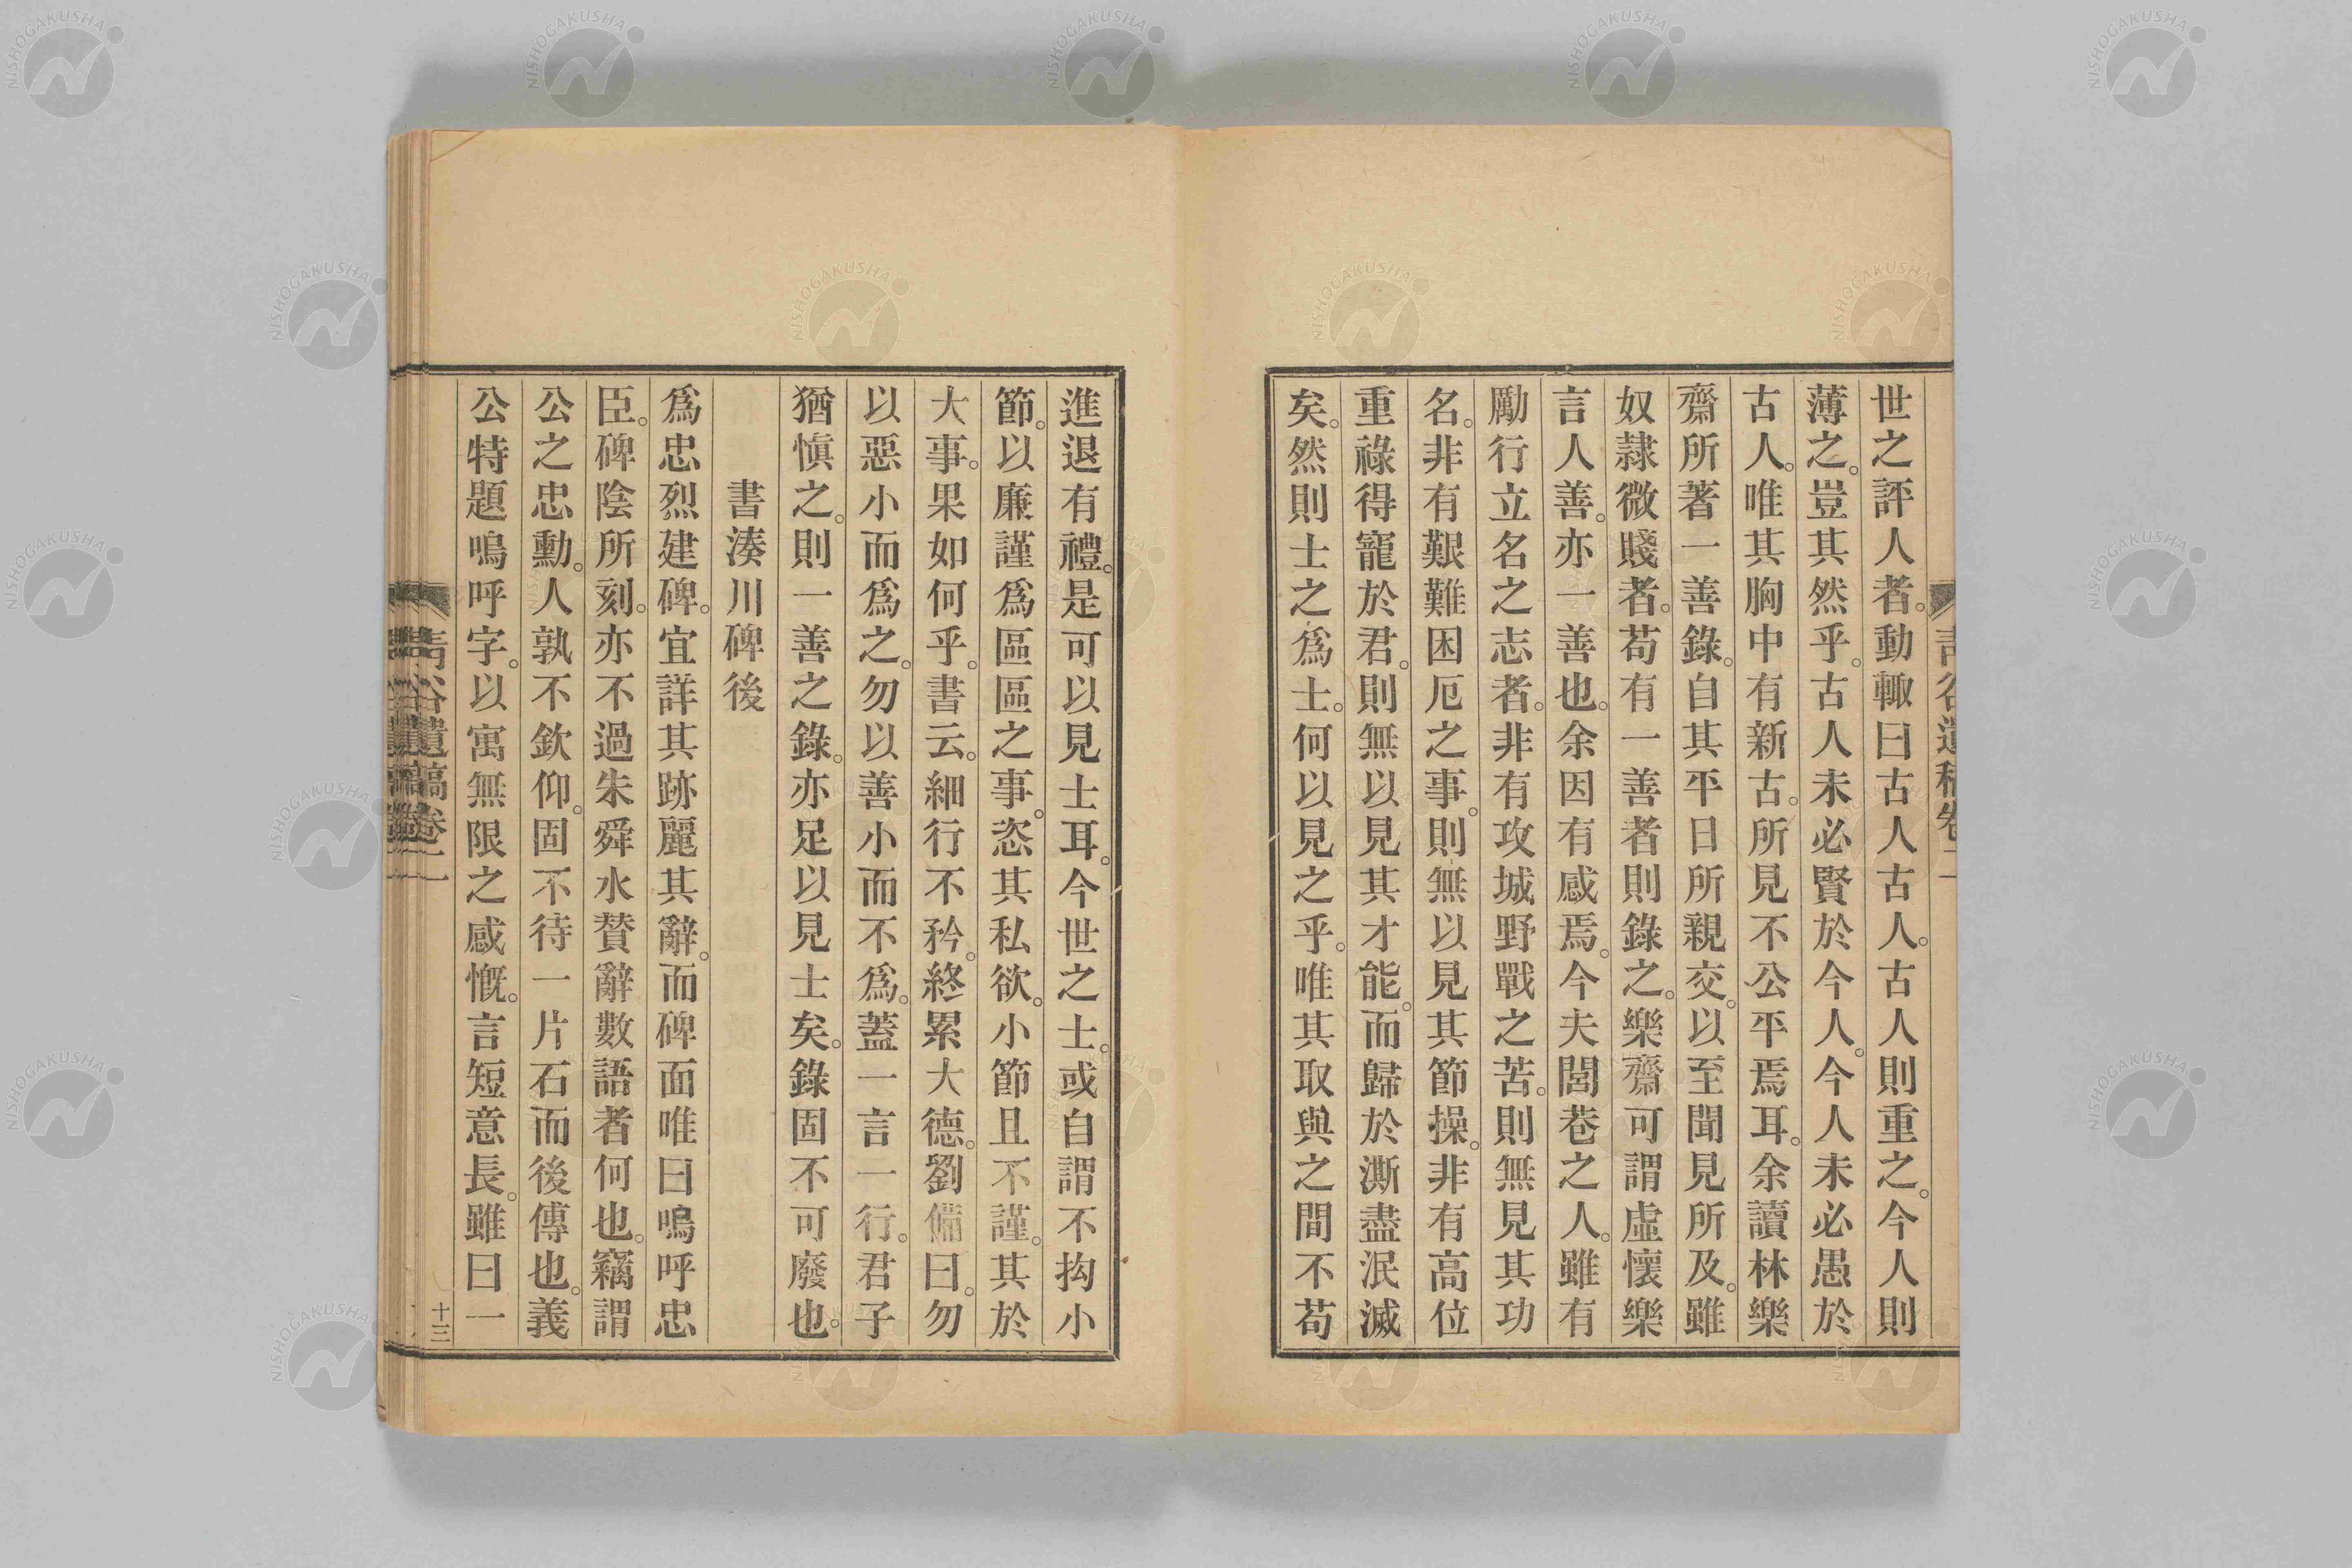 世之評人者。動輙曰古人古人。古人則重之。今人則
薄之。豈其然乎。古人未必賢於今人。今人未必愚於
古人。唯其胸中有新古。所見不公平焉耳。余讀林樂
齋所著一善錄。自其平日所親交。以至聞見所及。雖
奴隷微賤者。苟有一善者則錄之。樂齋可謂虛懷樂
言人善。亦一善也。余因有感焉。今夫閭巷之人。雖有
勵行立名之志者。非有攻城野戰之苦。則無見其功
名。非有艱難困厄之事。則無以見其節操。非有高位
重祿得寵於君。則無以見其才能。而歸於澌盡泯滅
矣。然則士之爲士。何以見之乎。唯其取與之間不苟
進退有禮。是可以見士耳。今世之士。或自謂不拘小
節。以廉謹爲區區之事。恣其私欲。小節且不謹。其於
大事。果如何乎。書云。細行不矜。終累大德。劉備曰。勿
以惡小而爲之。勿以善小而不爲。蓋一言一行。君子
猶愼之。則一善之錄。亦足以見士矣。錄固不可廢也。
書湊川碑後
爲忠烈建碑。宜詳其跡麗其辭。而碑面唯曰嗚呼忠
臣。碑陰所刻。亦不過朱舜水贊辭數語者何也。竊謂
公之忠勳。人孰不欽仰。固不待一片石而後傳也。義
公特題嗚呼字。以寓無限之感慨。言短意長。雖曰一
靑谷遺稿卷二
十三
NISHOGAKUSHA